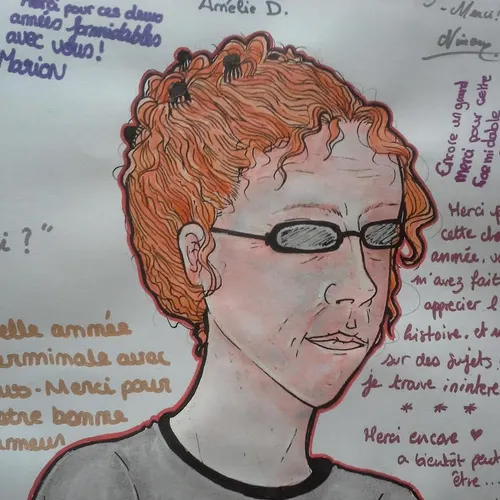 Merci pour ces deux
années formidables
avec vous !
Marion
Amélie D.
Merci
Encore un grand
merci pour cette
formidable
i ?"
elle année
erminale avec
ous - Merci pour
otre bonne
umeur
Merci
cette
année, v
m'avez fait
apprécier l
histoire, et
sur des sujets
je trouve ininter
* * *
Merci encore ♥
a bientôt peut
être...